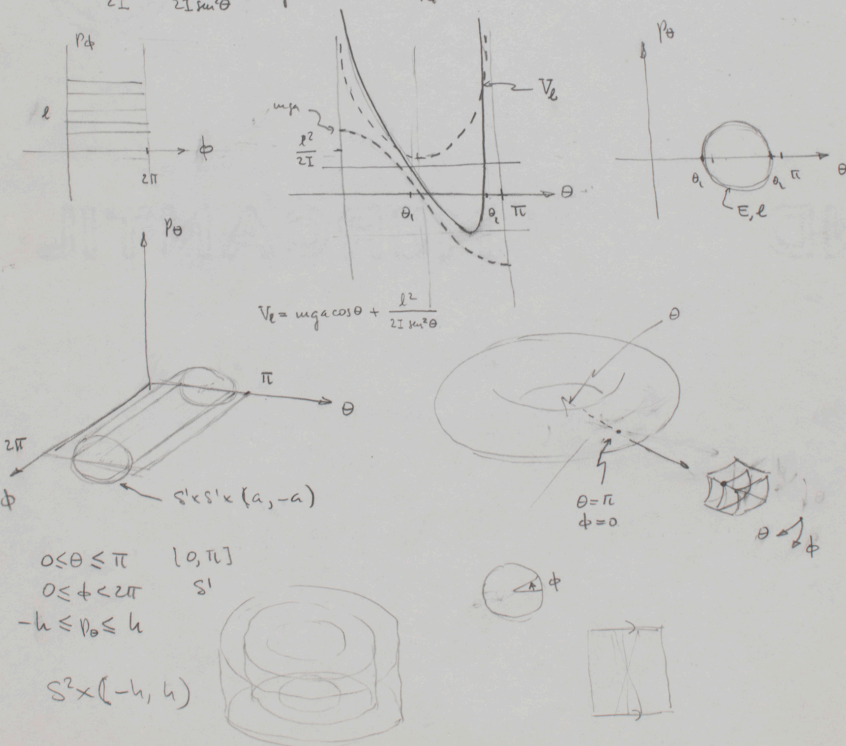 2I 2I sen²θ
Pϕ
Pθ
l
ϕ
2π
mga
l²/2I
V_l
θ
θ₁ θ₂ π
θ₁ θ₂ π θ
E, l
V_l = mga cosθ + l²/2I sen²θ
Pθ
π
θ
2π
ϕ
S¹×S¹×(a,-a)
θ
θ=π
ϕ=0
θ ϕ
0≤θ≤π [0,π]
0≤ϕ<2π S¹
-h≤pθ≤h
ϕ
S²×(-h,h)